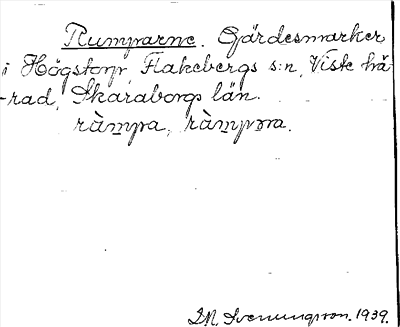 Rumparne. Gjärdesmarker
i Högstorp, Flakebergs s:n, Viste hä-
rad, Skaraborgs län.
ràmpa, ràmpɔra.
I.M. Svenungsson. 1939.